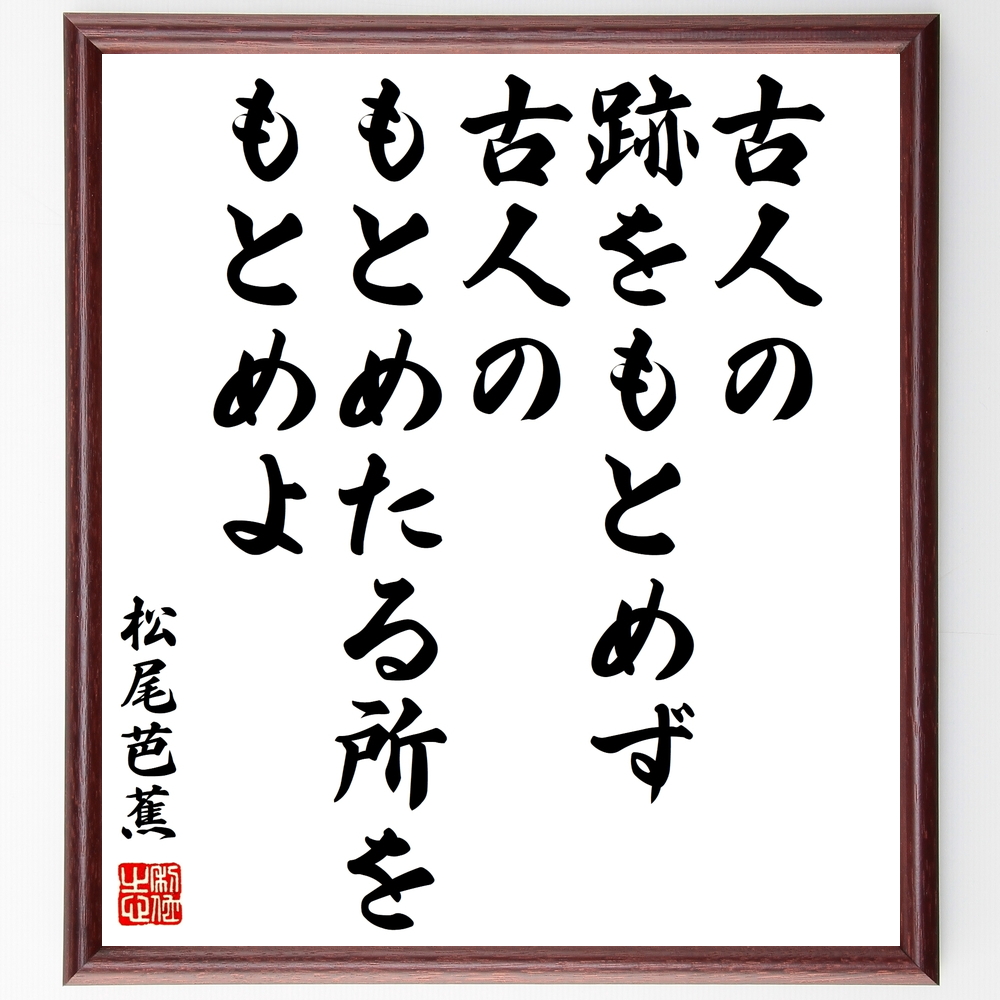 古人の
跡をもとめず
古人の
もとめたる所を
もとめよ
松尾芭蕉